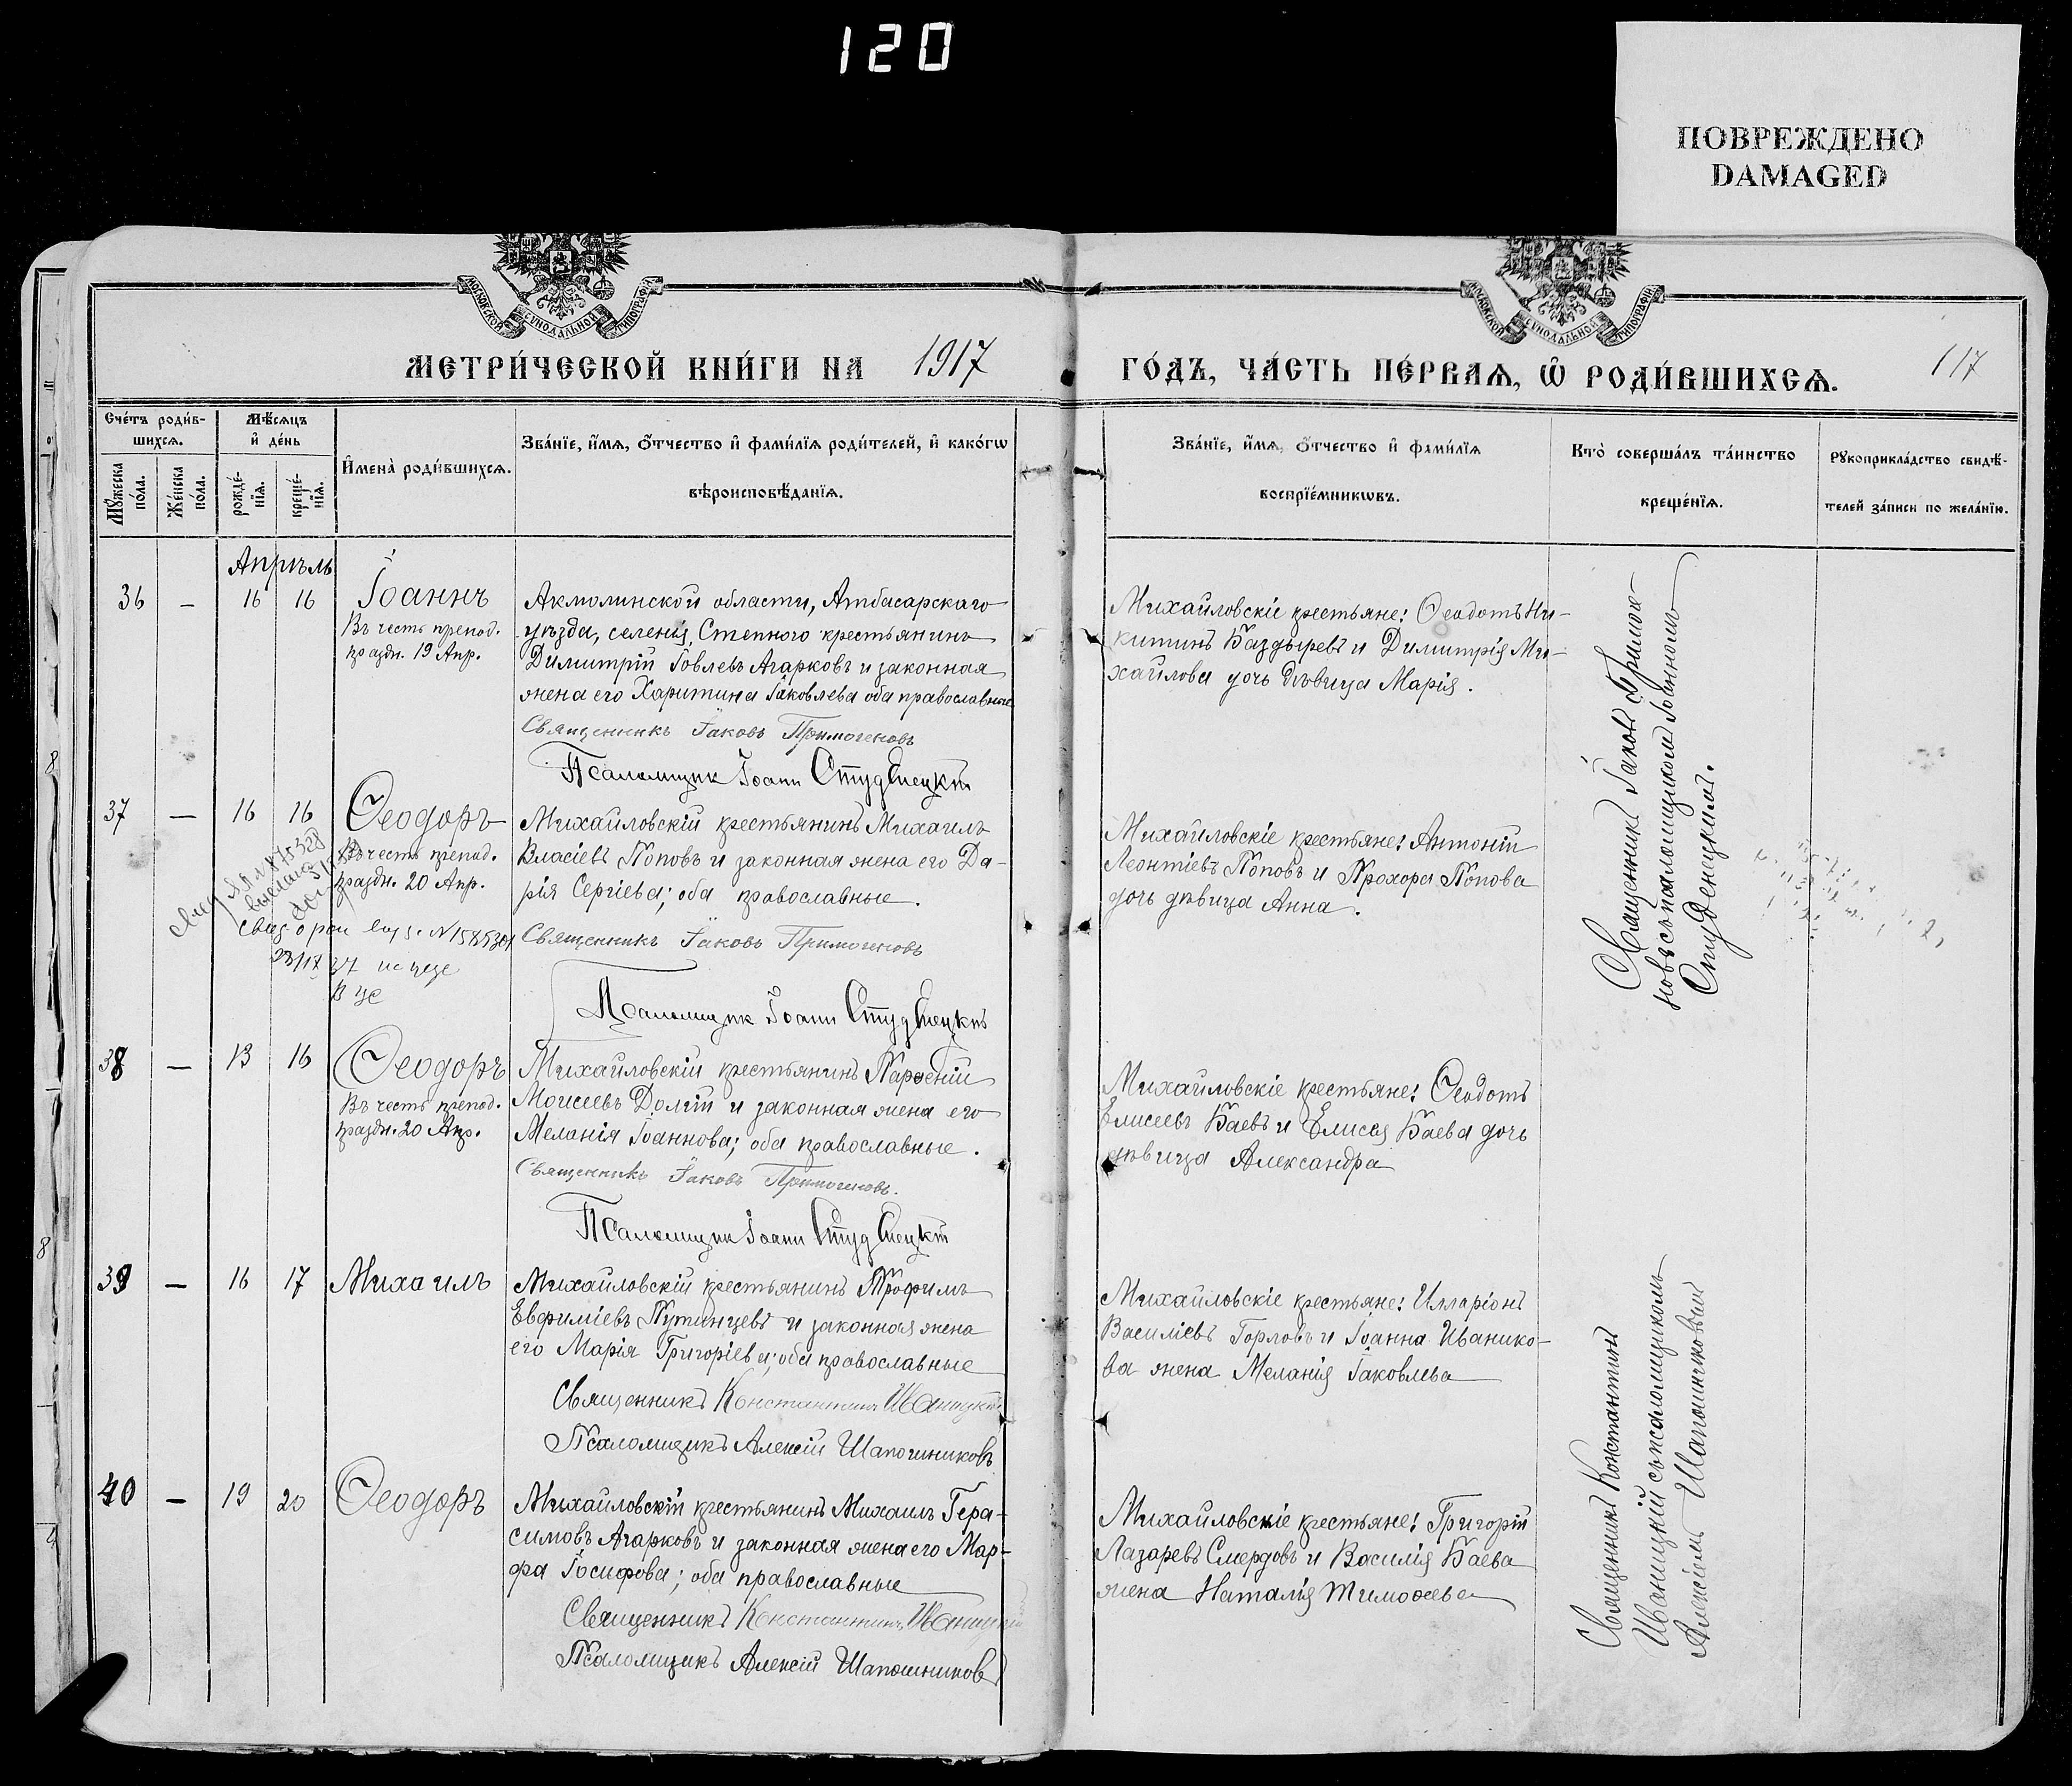 120
ПОВРЕЖДЕНО
DAMAGED
МОСКОВСКОЙ СѴНОДАЛЬНОЙ ТИПОГРАФІИ
МОСКОВСКОЙ СѴНОДАЛЬНОЙ ТИПОГРАФІИ
МЕТРИ́ЧЕСКОЙ КНИ́ГИ НА 1917
ГО́ДЪ, ЧА́СТЬ ПЕ́РВАѦ, Ѿ РОДИ́ВШИХСѦ.
117
Сче́тъ роди́в-
шихсѧ.
Мѣ́сѧцъ
и҆ де́нь
Мꙋ́жеска
по́ла.
Же́нска
по́ла.
рожде́-
нїѧ.
креще́-
нїѧ.
И҆мена̀ роди́вшихсѧ.
Зва́нїе, и҆́мѧ, ѻ҆́тчество и҆ фами́лїѧ роди́телей, и҆ како́гѡ
вѣроисповѣ́данїѧ.
Зва́нїе, и҆́мѧ, ѻ҆́тчество и҆ фами́лїѧ
воспрїе́мникѡвъ.
Кто̀ соверша́лъ та́инство
креще́нїѧ.
Рꙋкоприкла́дство свидѣ́-
телей за́писи по жела́нїю.
Апрѣль
36 — 16 16 Іоаннъ
Въ честь препод.
праздн. 19 Апр.
Акмолинской области, Атбасарскаго
уѣзда, селенія Степного крестьянинъ
Димитрій Іовлевъ Агарковъ и законная
жена его Харитина Іаковлева оба православные
Священникъ Іаковъ Примогеновъ
Псаломщик Іоанн Студенецкій
Михайловскіе крестьяне: Ѳеодотъ Ни-
китинъ Баздыревъ и Димитрія Ми-
хайлова дочь дѣвица Марія.
Священникъ Іаковъ Примоге-
новъ съ псаломщикомъ Іоанномъ
Студенецкимъ.
37 — 16 16 Ѳеодоръ
Въ честь препод.
праздн. 20 Апр.
23/IX
Михайловскій крестьянинъ Михаилъ
Власіевъ Поповъ и законная жена его Да-
рія Сергіева; оба православные.
Священникъ Іаковъ Примогеновъ
Псаломщик Іоанн Студенецкій
Михайловскіе крестьяне: Антоній
Леонтіевъ Поповъ и Прохора Попова
дочь дѣвица Анна.
38 — 13 16 Ѳеодоръ
Въ честь препод.
праздн. 20 Апр.
Михайловскій крестьянинъ Парѳеній
Моисеевъ Долгій и законная жена его
Меланія Іоаннова; оба православные.
Священникъ Іаковъ Примогеновъ.
Псаломщик Іоанн Студенецкій
Михайловскіе крестьяне: Ѳеодотъ
Елисеевъ Баевъ и Елисея Баева дочь
дѣвица Александра
39 — 16 17 Михаилъ
Михайловскій крестьянинъ Трофимъ
Евфиміевъ Путинцевъ и законная жена
его Марія Григоріева; оба православные
Священникъ Константинъ Иваницкій
Псаломщикъ Алексій Шапошниковъ
Михайловскіе крестьяне: Илларіонъ
Василіевъ Горловъ и Іоанна Иванико-
ва жена Меланія Іаковлева
Священникъ Константинъ
Иваницкій съ псаломщикомъ
Алексіемъ Шапошниковым
40 — 19 20 Ѳеодоръ
Михайловскій крестьянинъ Михаилъ Гера-
симовъ Агарковъ и законная жена его Мар-
фа Іосифова; оба православные
Священникъ Константинъ Иваницкій
Псаломщикъ Алексій Шапошниковъ
Михайловскіе крестьяне: Григорій
Лазаревъ Смердовъ и Василія Баева
жена Наталія Тимоѳеева